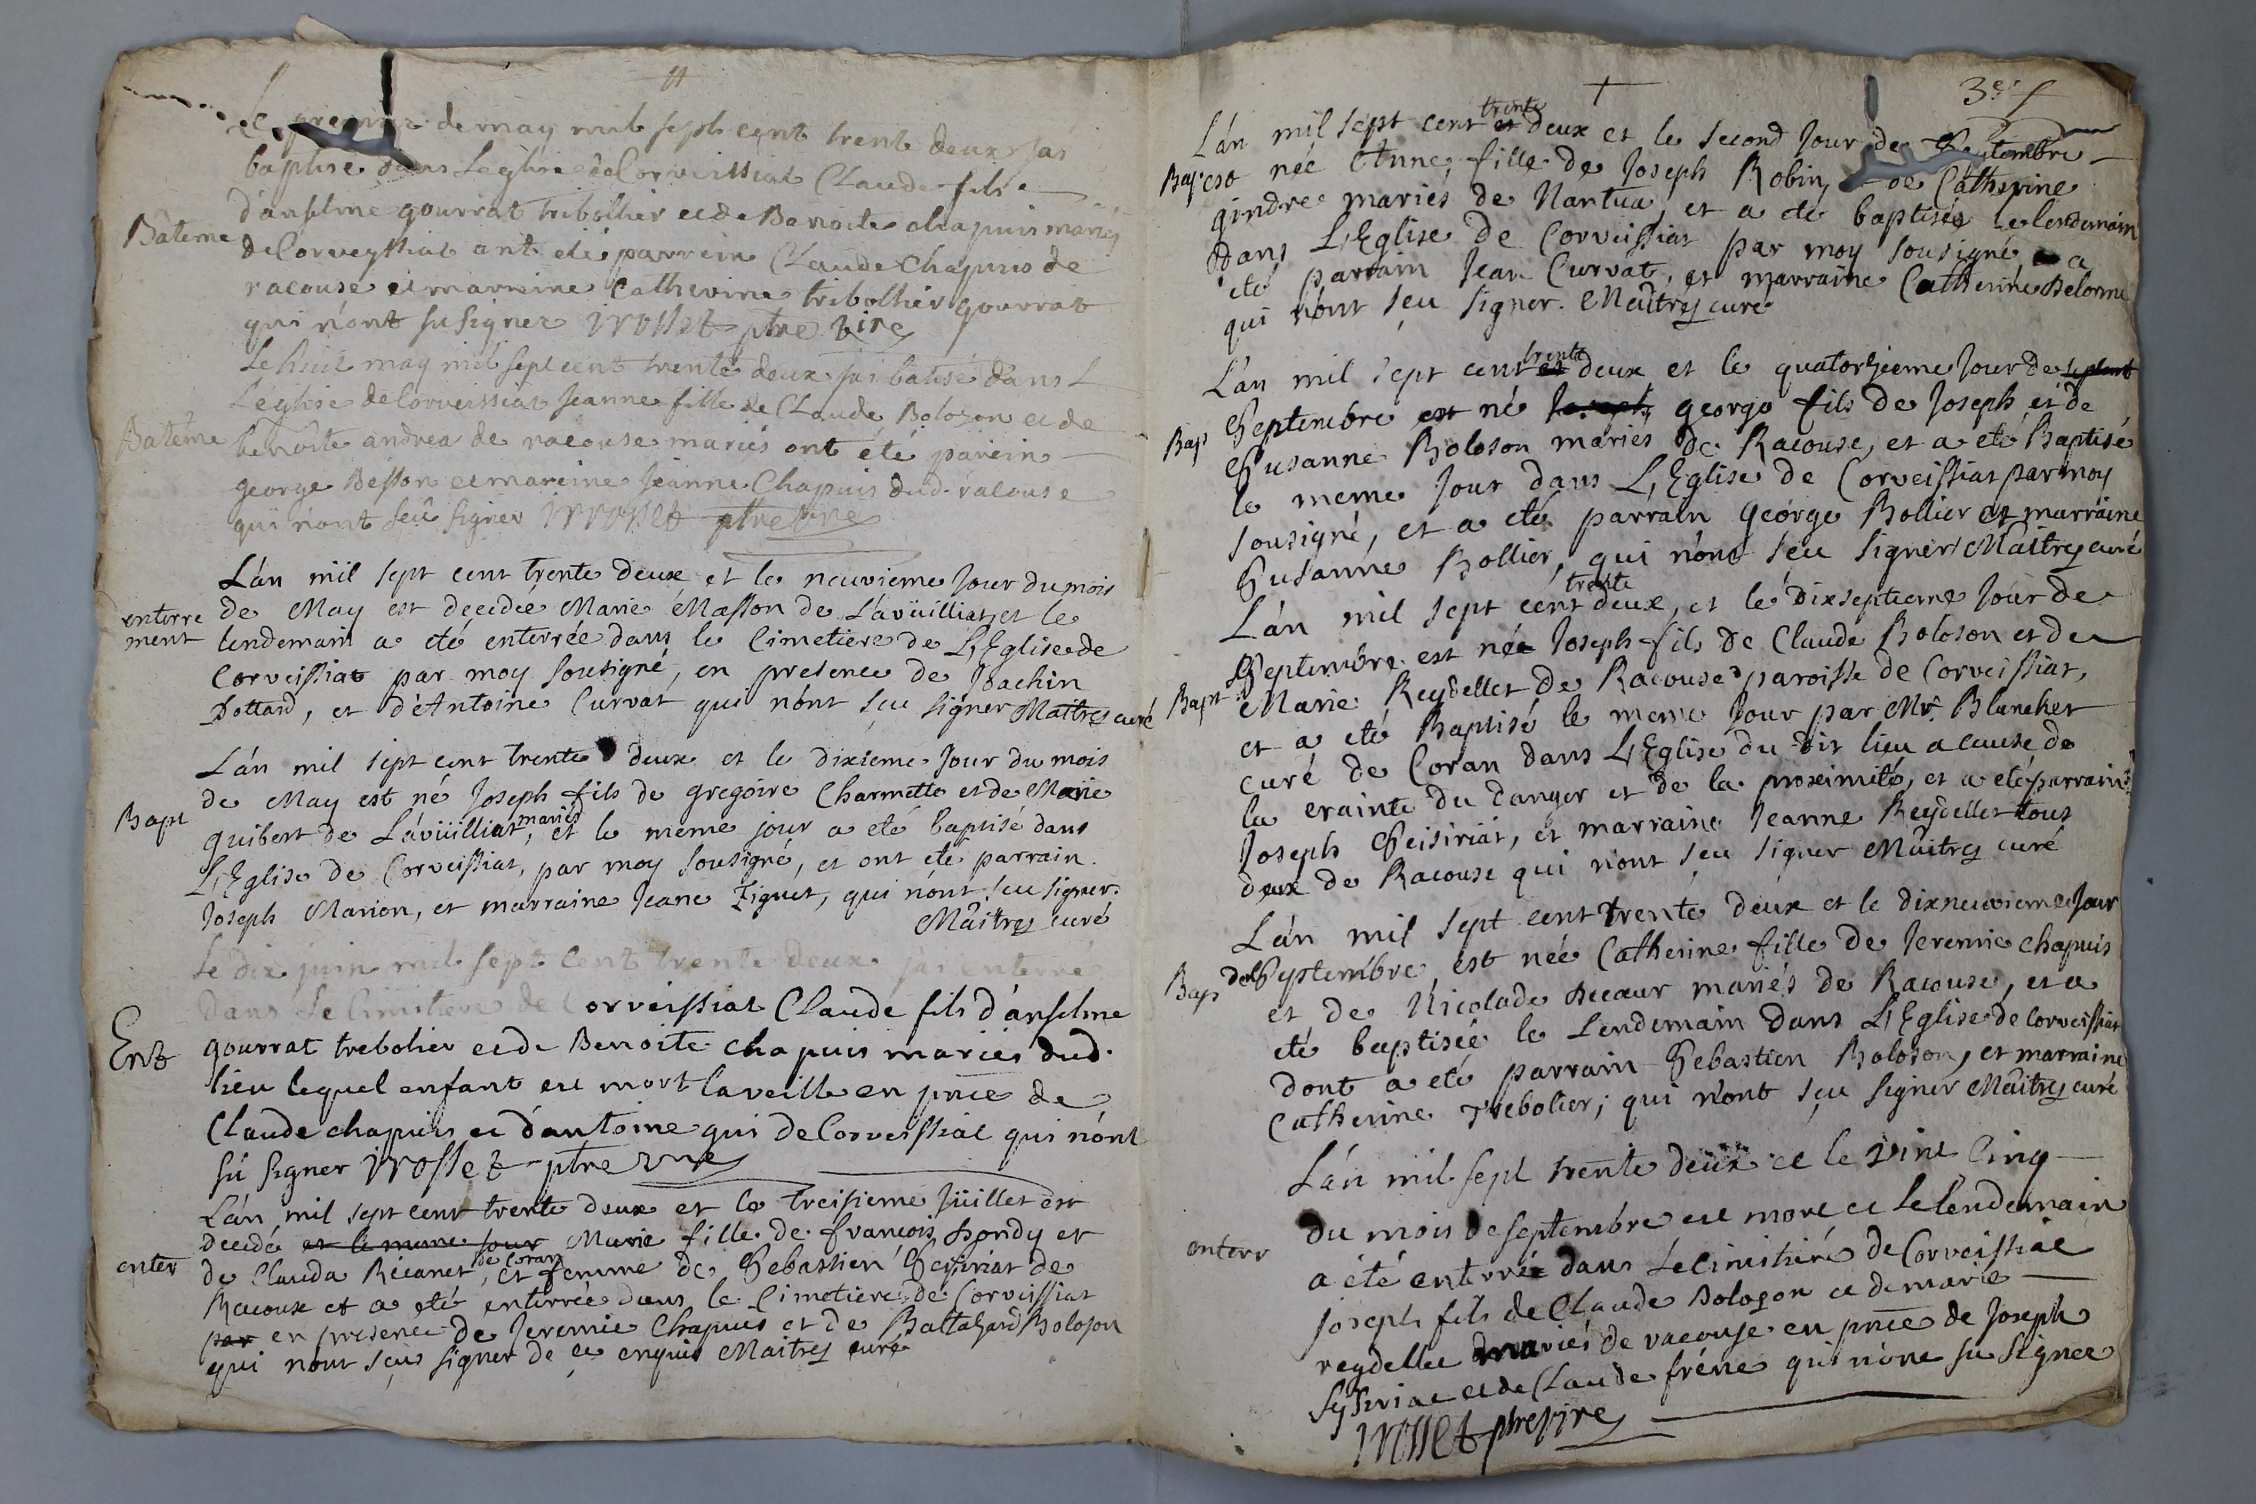 Le premier de may mil sept cent trent deux jai
baptise dans Leglise de Corveissiat Claude fils
d'anselme gourrat tribollier et de Benoite chapuis mariés
Bâteme
de Corveyssiat ont été parrein Claude Chapuis de
racouse et marreine Catherine tribollier gourrat
qui n'ont su signer J Rosset ptre vire
Le huit may mil sept cent trente deux jai batisé dans L
L'église de Corveissiat Jeanne fille de Claude Bolozon et de
Batême
benoite andrea de racouse mariés ont été parein
george Besson et mareine Jeanne Chapuis dud. racouse
qui n'ont seu signer J Rosset ptre vire
L'an mil sept cent trente deux et le neuvieme Jour du mois
enterre
ment
de May est decedée Marie Masson de Lavüilliat, et le
lendemain a eté enterrée dans le Cimetiere de L'Eglise de
Corveissiat par moy sousigné, en presence de Joachin
Dottard, et d'Antoine Curvat qui n'ont sçu signer Maitrez curé
L'an mil sept cent trente deux et le dixieme Jour du mois
de May est né Joseph fils de gregoire Charmette et de Marie
Bapt
guibert de Lavüilliat mariés, et le meme jour a eté baptisé dans
L'Eglise de Corveissiat, par moy sousigné, et ont eté parrain
Joseph Marion, et marraine Jeane Tignet, qui n'ont seu signer.
Maitrez curé
Le dix juin mil sept cent trente deux jai enterré
dans le Cimitiere de Corveissiat Claude fils d'anselme
Ent
gourrat trebolier et de Benoite chapuis mariés dud.
lieu lequel enfant est mort la veille en pnce de
Claude chapuis et d'antoine gui de Corveissiat qui n'ont
sû signer J Rosset ptre vire
L'an mil sept cent trente deux et le treisieme Jüillet est
decedé et le meme jour Marie fille de françois Hondy et
enter
de Clauda Ricanet de Coran, et femme de Sebastien Seisiriat de
Racouse et a eté enterrée dans le Cimetiere de Corveissiat
par en presence de Jeremie Chapuis et de Baltahard Boloson
qui n'ont sçus signer de ce enquis Maitrez curé
3e f
L'an mil sept cent et trente deux et le second Jour de Septembre
Bap.
est née Anne fille de Joseph Robin, et de Catherine
gindre mariés de Nantua, et a eté baptisée le lendemain
dans L'Eglise de Corveissiat par moy sousigné a
eté parrain Jean Curvat, et marraine Catherine Delorme
qui n'ont sçu signer. Maitrez curé
L'an mil sept cent et trente deux et le quatorzieme Jour de septemb
Septembre est né Joseph george fils de Joseph et de
Bap
Susanne Boloson mariés de Racouse, et a eté Baptisé
le meme Jour dans L'Eglise de Corveissiat par moy
sousigné, et a eté parrain george Bollier et marraine
Susanne Bollier, qui n'ont sçu signer Maitrez curé
L'an mil sept cent trente deux, et le Dixseptieme Jour de
Septembre est née Joseph fils de Claude Boloson et de
Bapt
Marie Reydellet de Racouse paroisse de Corveissiat,
et a eté Baptisé le meme Jour par Mr. Blanchet
curé de Coran dans L'Eglise du dit lieu a cause de
la crainte du danger et de la proximité, et a eté parrain
Joseph Seisiriat, et marraine Jeanne Reydellet tous
deux de Racouse qui n'ont sçu signer Maitrez curé
L'an mil sept cent trente deux et le dixneuvieme Jour
Bap
de Septembre est née Catherine fille de Jeremie Chapuis
et de Nicolade Decœur mariés de Racouse, et a
eté baptisée le Lendemain dans L'Eglise de Corveissiat
dont a eté parrain Sebastien Boloson, et marraine
Catherine Trebolier; qui n'ont sçu signer Maitrez curé
L'an mil sept trente deux et le vint Cinq
du mois de septembre est mort et le lendemain
enterr
a été enterrée dans le cimitiere de Corveissiat
joseph fils de Claude Bolozon et de marie
reydellet mariés de racouse en pnce de Joseph
Syseriat et de Claude frére qui n'ont su signer
J Rosset ptre vire